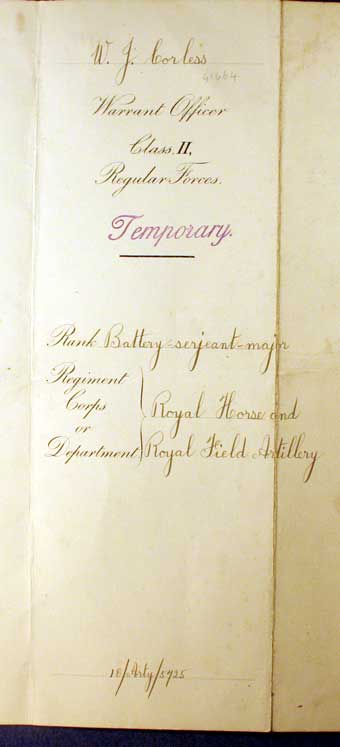 W. J. Corless
61664
Warrant Officer
Class II,
Regular Forces.
Temporary.
Rank Battery-serjeant-major
Regiment
Corps
or
Department
Royal Horse and
Royal Field Artillery
18/Arty/5725